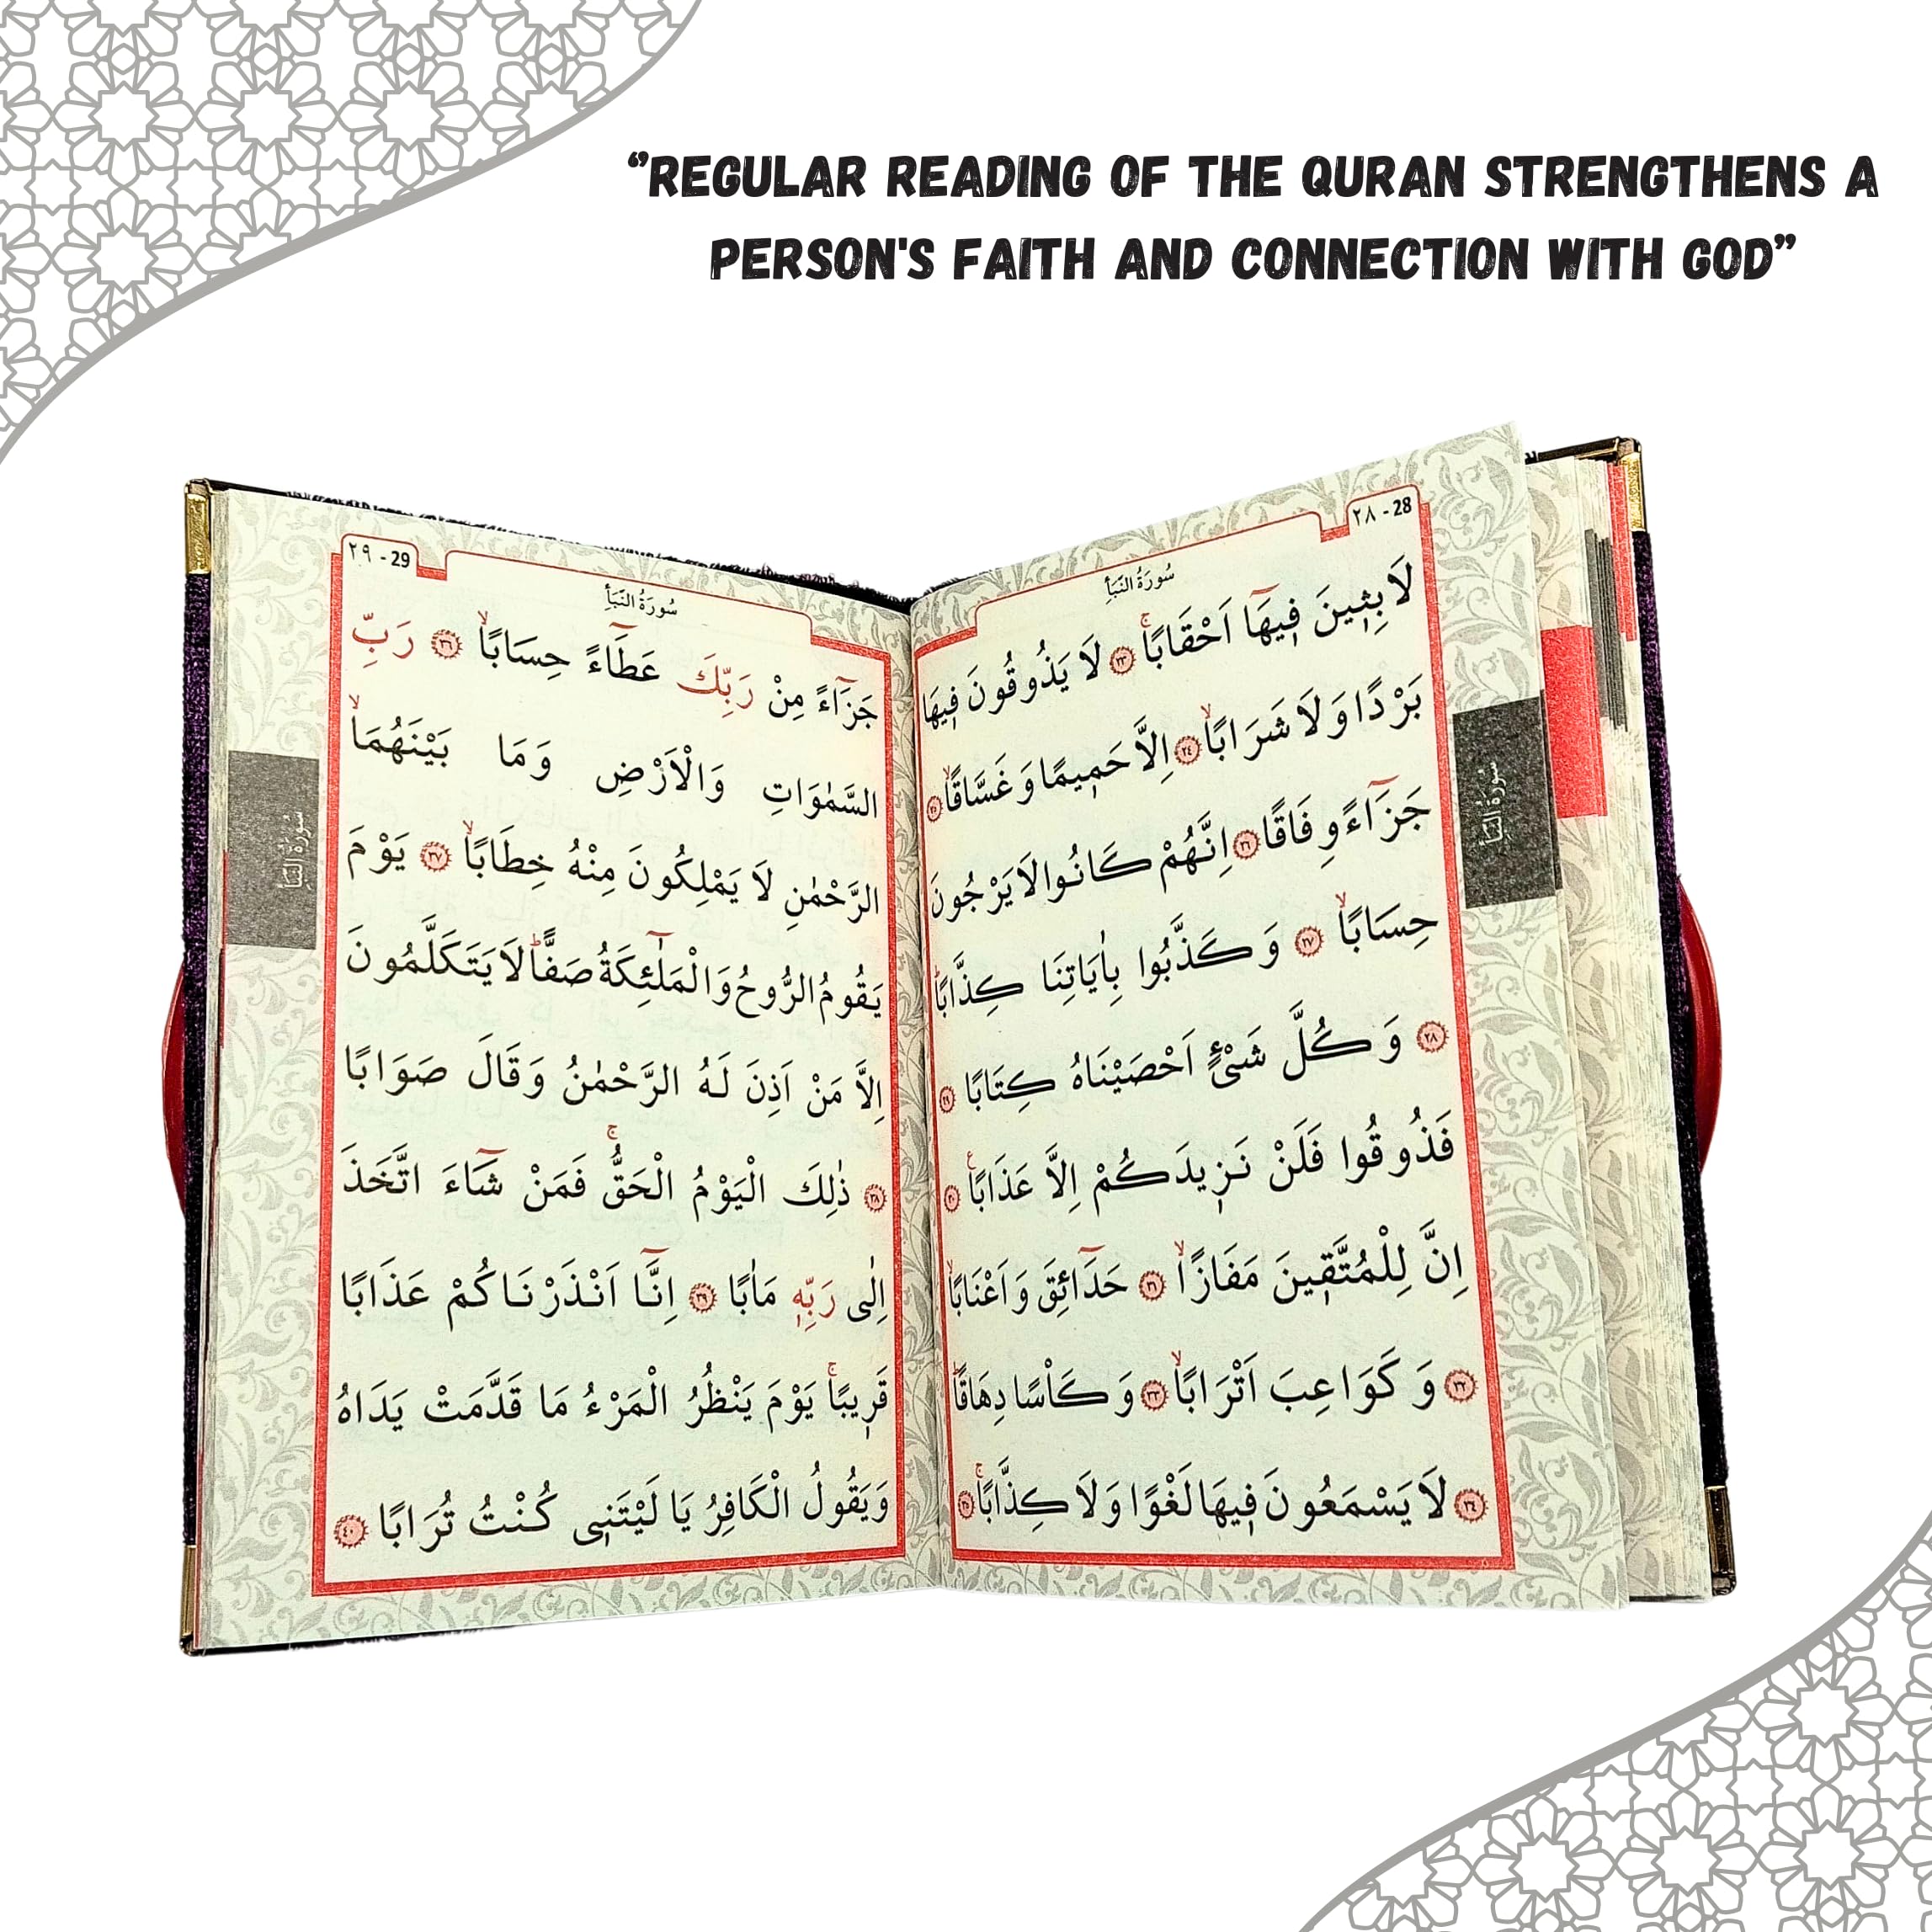 “REGULAR READING OF THE QURAN STRENGTHENS A
PERSON'S FAITH AND CONNECTION WITH GOD”
٢٨ - 28
سُورَةُ النَّبَأِ
لَابِثِينَ فِيهَٓا اَحْقَابًاۚ ﴿٢٣﴾ لَا يَذُوقُونَ فِيهَا
بَرْدًا وَلَا شَرَابًاۙ ﴿٢٤﴾ اِلَّا حَمِيمًا وَغَسَّاقًاۙ ﴿٢٥﴾
جَزَٓاءً وِفَاقًا ﴿٢٦﴾ اِنَّهُمْ كَانُوا لَا يَرْجُونَ
حِسَابًاۙ ﴿٢٧﴾ وَكَذَّبُوا بِاٰيَاتِنَا كِذَّابًاۜ
﴿٢٨﴾ وَكُلَّ شَيْءٍ اَحْصَيْنَاهُ كِتَابًا ﴿٢٩﴾
فَذُوقُوا فَلَنْ نَزِيدَكُمْ اِلَّا عَذَابًا ﴿٣٠﴾
اِنَّ لِلْمُتَّقِينَ مَفَازًاۙ ﴿٣١﴾ حَدَٓائِقَ وَاَعْنَابًاۙ
﴿٣٢﴾ وَكَوَاعِبَ اَتْرَابًاۙ ﴿٣٣﴾ وَكَأْسًا دِهَاقًاۜ
﴿٣٤﴾ لَا يَسْمَعُونَ فِيهَا لَغْوًا وَلَا كِذَّابًاۚ ﴿٣٥﴾
سُورَةُ النَّبَأِ
٢٩ - 29
سُورَةُ النَّبَأِ
جَزَٓاءً مِنْ رَبِّكَ عَطَٓاءً حِسَابًاۙ ﴿٣٦﴾ رَبِّ
السَّمٰوَاتِ وَالْاَرْضِ وَمَا بَيْنَهُمَاۙ
الرَّحْمٰنِ لَا يَمْلِكُونَ مِنْهُ خِطَابًاۙ ﴿٣٧﴾ يَوْمَ
يَقُومُ الرُّوحُ وَالْمَلٰٓئِكَةُ صَفًّاۜ لَا يَتَكَلَّمُونَ
اِلَّا مَنْ اَذِنَ لَهُ الرَّحْمٰنُ وَقَالَ صَوَابًا
﴿٣٨﴾ ذٰلِكَ الْيَوْمُ الْحَقُّۚ فَمَنْ شَٓاءَ اتَّخَذَ
اِلٰى رَبِّهِ مَاٰبًا ﴿٣٩﴾ اِنَّٓا اَنْذَرْنَاكُمْ عَذَابًا
قَرِيبًاۚ يَوْمَ يَنْظُرُ الْمَرْءُ مَا قَدَّمَتْ يَدَاهُ
وَيَقُولُ الْكَافِرُ يَا لَيْتَنِى كُنْتُ تُرَابًا ﴿٤٠﴾
سُورَةُ النَّبَأِ